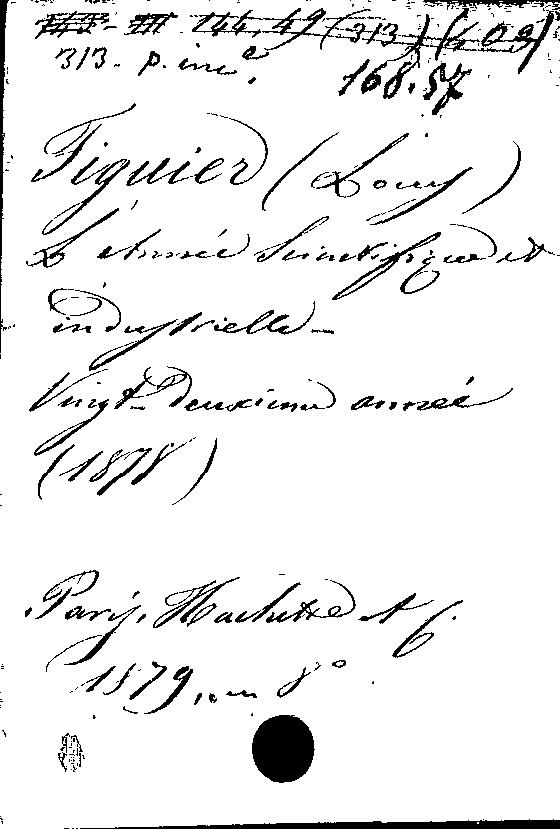 144.49 (313) (409)
313. p. inc.
168.57
Figuier (Louis)
L'Année Scientifique et
industrielle –
Vingt-Deuxième année
(1878)
Paris, Hachette et C.
1879, in 8°